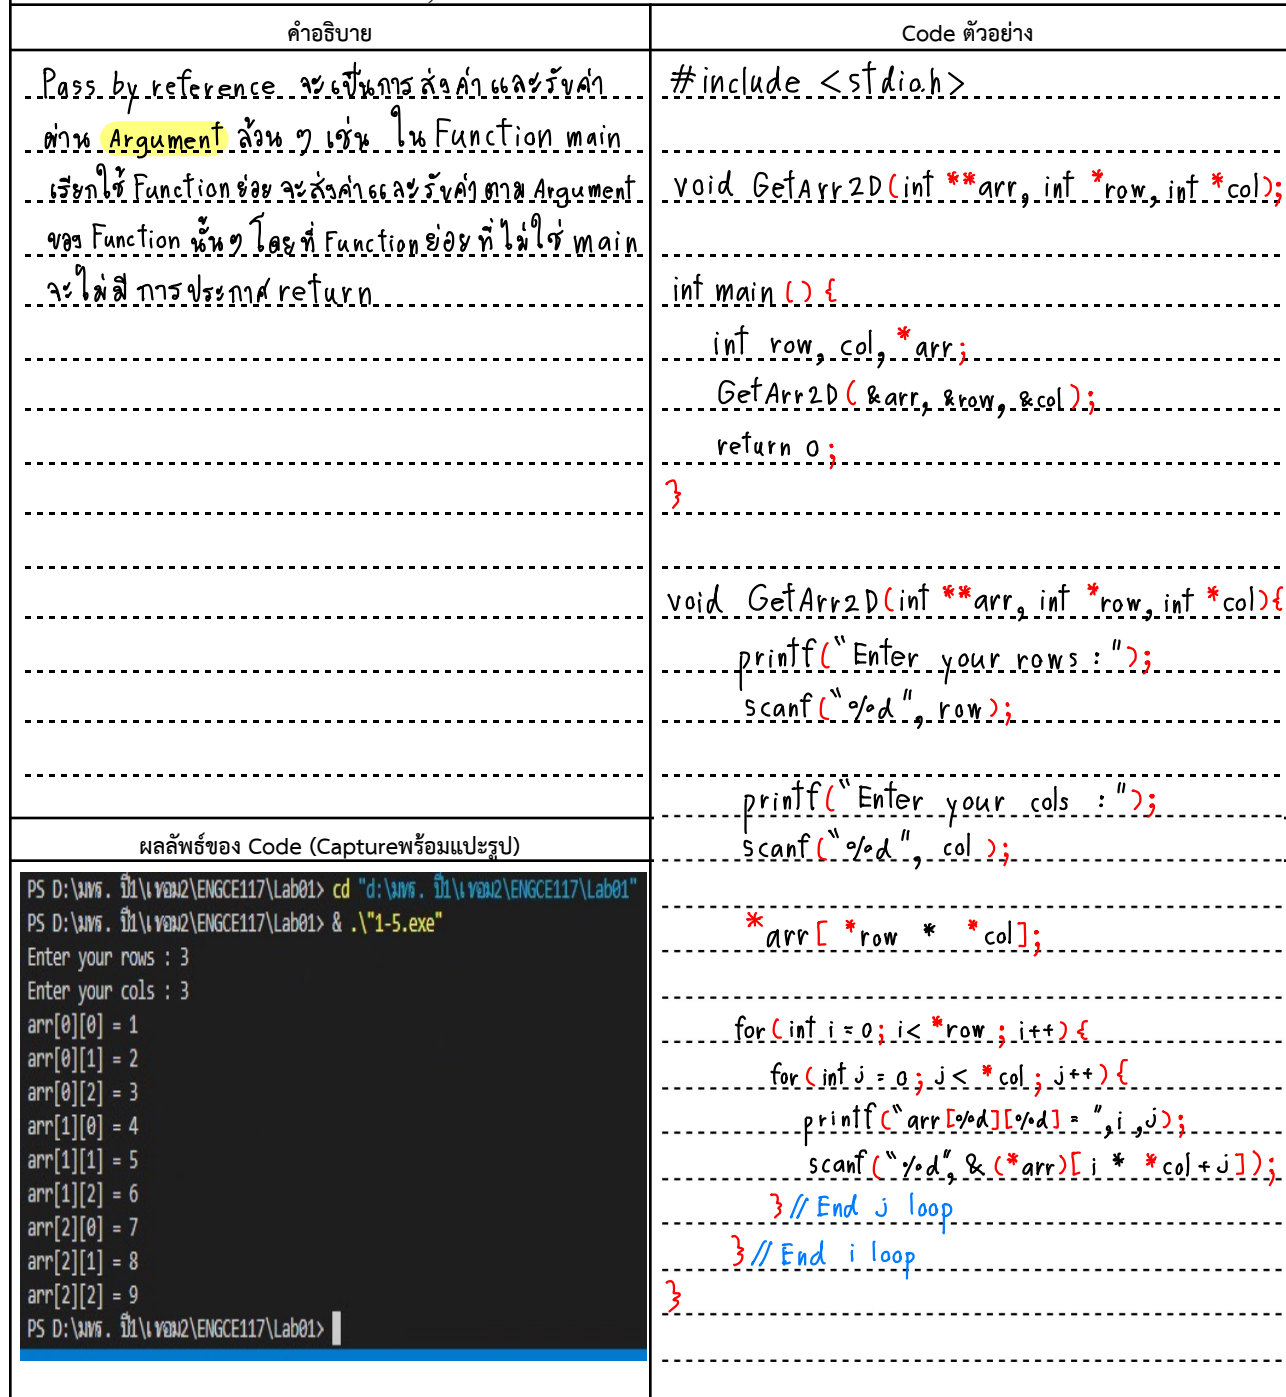 คำอธิบาย
Pass by reference จะเป็นการส่งค่า และรับค่า
ผ่าน Argument ล้วน ๆ เช่น ใน Function main
เรียกใช้ Function ย่อย จะส่งค่าและรับค่า ตาม Argument
ของ Function นั้น ๆ โดยที่ Function ย่อย ที่ไม่ใช่ main
จะไม่มี การประกาศ return
ผลลัพธ์ของ Code (Captureพร้อมแปะรูป)
PS D:\มทร. ปี1\เทอม2\ENGCE117\Lab01> cd "d:\มทร. ปี1\เทอม2\ENGCE117\Lab01"
PS D:\มทร. ปี1\เทอม2\ENGCE117\Lab01> & .\"1-5.exe"
Enter your rows : 3
Enter your cols : 3
arr[0][0] = 1
arr[0][1] = 2
arr[0][2] = 3
arr[1][0] = 4
arr[1][1] = 5
arr[1][2] = 6
arr[2][0] = 7
arr[2][1] = 8
arr[2][2] = 9
PS D:\มทร. ปี1\เทอม2\ENGCE117\Lab01>
Code ตัวอย่าง
#include <stdio.h>
void GetArr2D(int **arr, int *row, int *col);
int main () {
int row, col, *arr;
GetArr2D ( &arr, &row, &col );
return 0 ;
}
void GetArr2D(int **arr, int *row, int *col){
printf("Enter your rows : ");
scanf("%d", row);
printf("Enter your cols : ");
scanf("%d", col );
*arr[ *row * *col];
for ( int i = 0; i< *row ; i++) {
for ( int j = 0 ; j < *col ; j++ ) {
printf("arr[%d][%d] = ", i , j);
scanf("%d", & (*arr)[ i * *col + j ]);
} // End j loop
} // End i loop
}